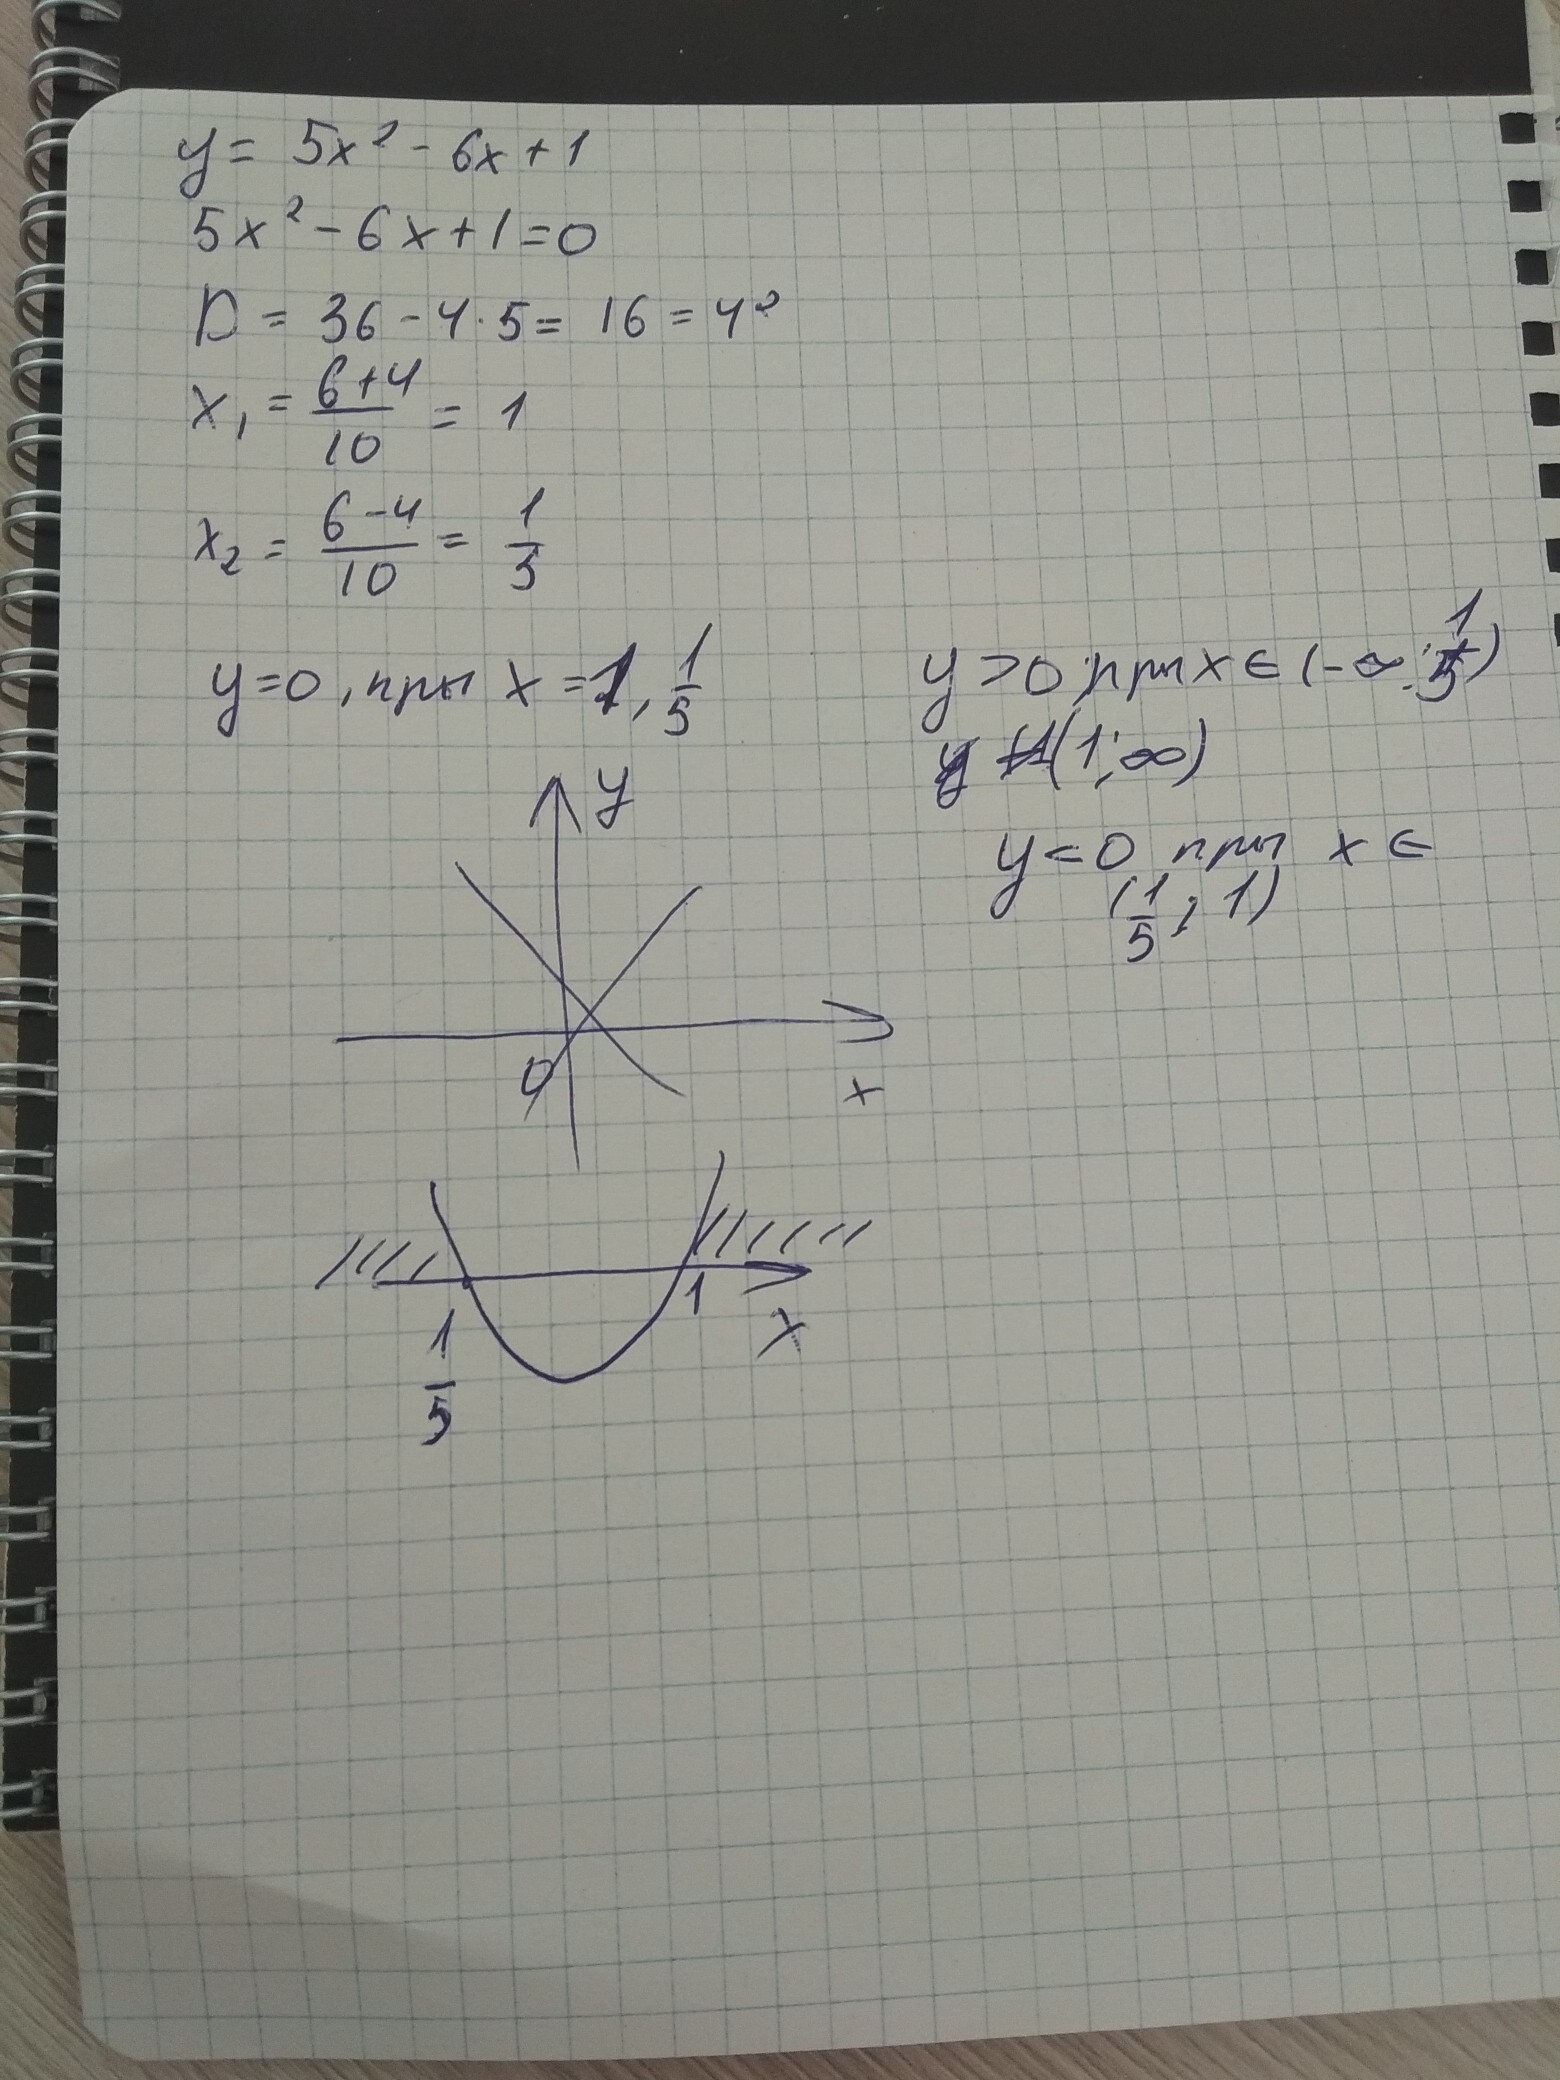 y = 5x² - 6x + 1
5x² - 6x + 1 = 0
D = 36 - 4 · 5 = 16 = 4²
x₁ = (6+4)/10 = 1
x₂ = (6-4)/10 = 1/5
y=0, при x = 1, 1/5
y > 0 при x ∈ (-∞; 1/5)
(1; ∞)
y < 0 при x ∈
(1/5; 1)
y
0
x
1/5
1
x